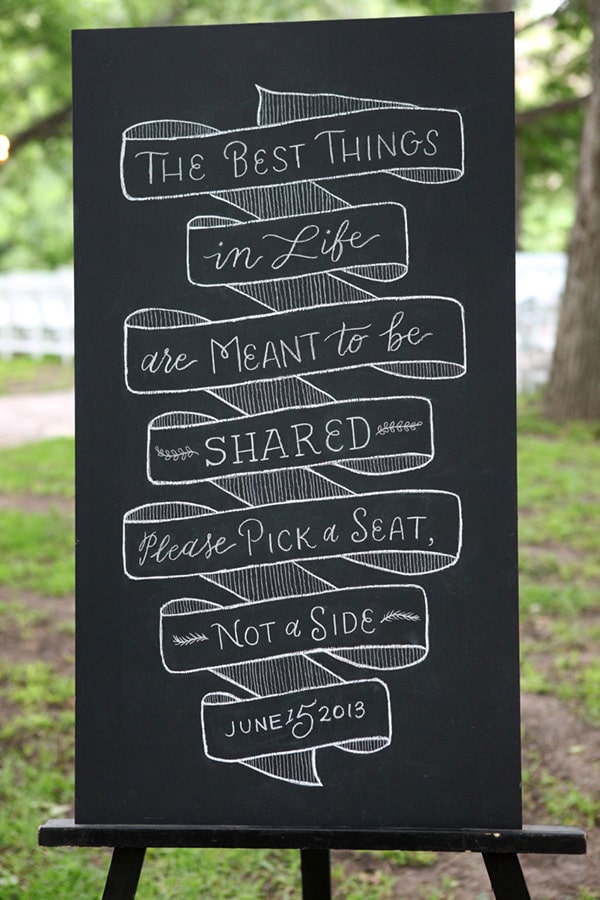 THE BEST THINGS
in Life
are MEANT to be
SHARED
Please PICK a SEAT,
NOT a SIDE
JUNE 15 2013